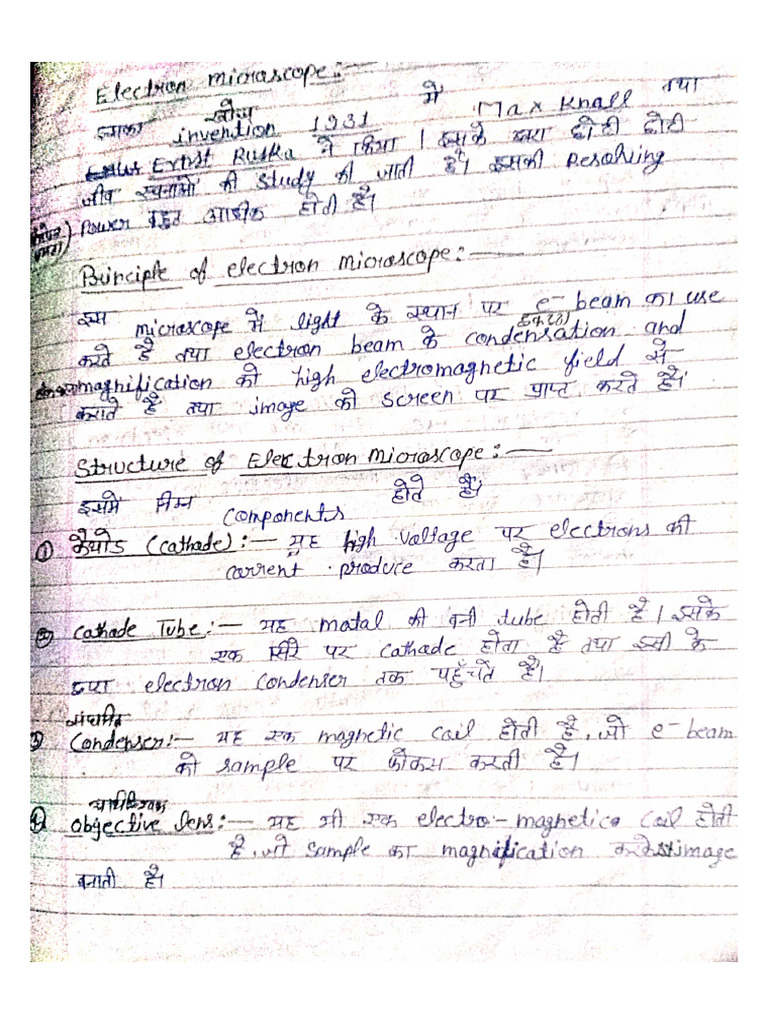 Electron Microscope:-
इसका खोज invention 1931 में Max Knall तथा
Ernst Ruska ने किया। इसके द्वारा छोटी छोटी
जीव रचनाओं की study की जाती है। इसकी Resolving
Power बहुत अधिक होती है।
Principle of electron microscope:-
इस microscope में light के स्थान पर e- beam का use
करते है तथा electron beam के condensation and
magnification को high electromagnetic field से
कराते है तथा image को screen पर प्राप्त करते है।
Structure of Electron Microscope:-
इसमें निम्न components होते है।
① कैथोड (cathade):- यह high voltage पर electrons की
current produce करता है।
② Cathade Tube:- यह matal की बनी tube होती है। इसके
एक सिरे पर cathade होता है तथा इसी के
द्वारा electron condenser तक पहुँचते है।
संघनित
③ Condenser:- यह एक magnetic coil होती है, जो e- beam
को sample पर फोकस करती है।
④ objective lens:- यह भी एक electro-magnetic coil होती
है, जो sample का magnification करके image
बनाती है।